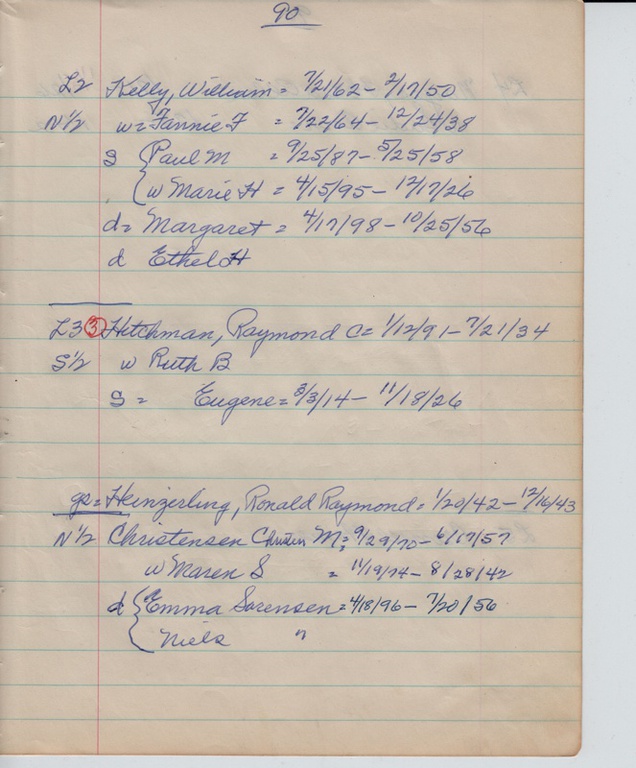 90
L2 Kelly, William = 7/21/62 - 2/17/50
N 1/2 w = Fannie F = 7/22/64 - 12/24/38
s { Paul M = 9/25/87 - 5/25/58
{ w Marie H = 4/15/95 - 12/17/26
d = Margaret = 4/17/98 - 10/25/56
d Ethel H
L3 3 Hitchman, Raymond C = 1/12/91 - 7/21/34
S 1/2 w Ruth B
S = Eugene = 3/3/14 - 11/18/26
gs = Heinzerling, Ronald Raymond = 1/20/42 - 12/16/43
N 1/2 Christensen Christen M = 9/29/70 - 6/17/57
w Maren S = 11/19/74 - 8/28/42
d { Emma Sorensen = 4/18/96 - 7/20/56
{ Niels "